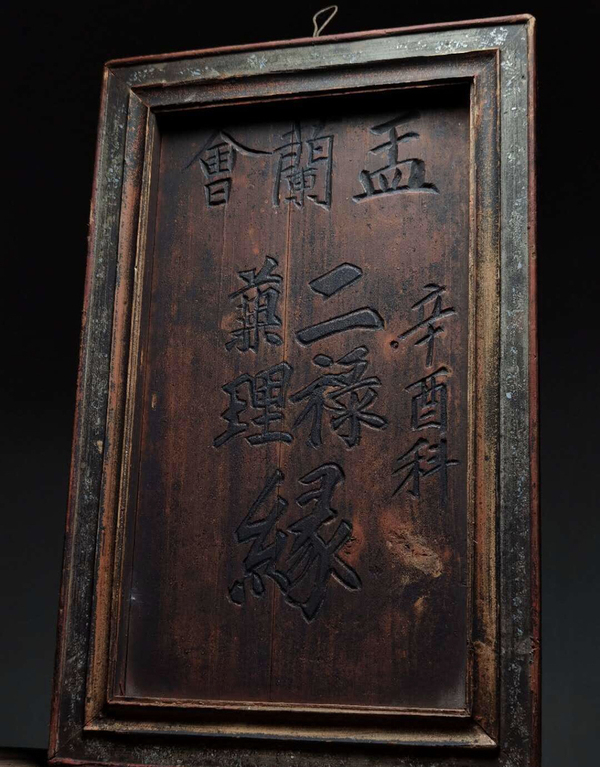 盂蘭會
辛酉科
二祿
藥理
緣